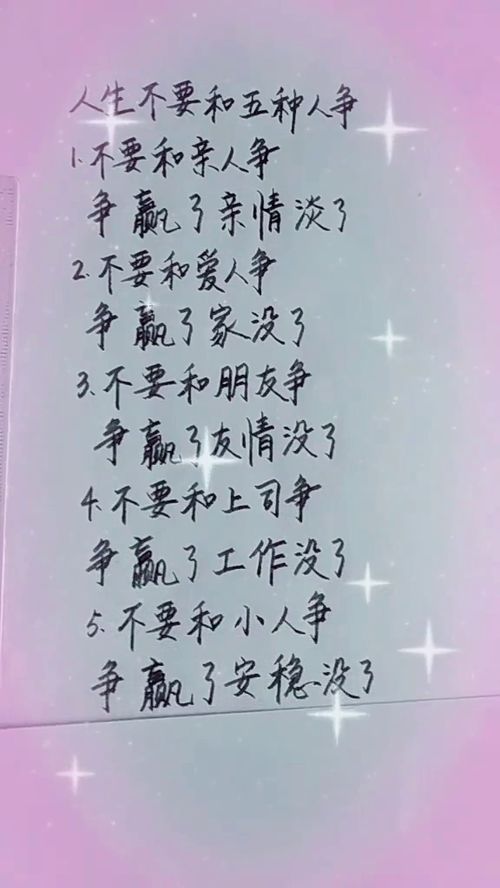 人生不要和五种人争
1.不要和亲人争
争赢了亲情淡了
2.不要和爱人争
争赢了家没了
3.不要和朋友争
争赢了友情没了
4.不要和上司争
争赢了工作没了
5.不要和小人争
争赢了安稳没了